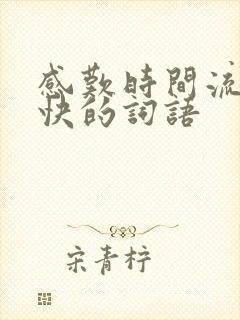 感歎時間流
快的詞語
宋青梓